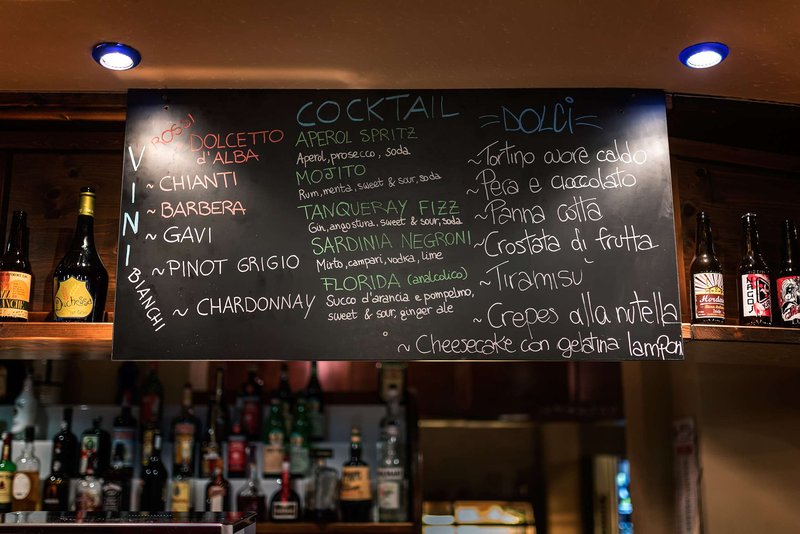 VINI
ROSSI
DOLCETTO
d'ALBA
~ CHIANTI
~ BARBERA
~ GAVI
~ PINOT GRIGIO
~ CHARDONNAY
BIANCHI
COCKTAIL
APEROL SPRITZ
Aperol, prosecco, soda
MOJITO
Rum, menta, sweet & sour, soda
TANQUERAY FIZZ
Gin, angostina, sweet & sour, soda
SARDINIA NEGRONI
Mirto, campari, vodka, lime
FLORIDA (analcolico)
Succo d'arancia e pompelmo,
sweet & sour, ginger ale
=DOLCI=
~ Tortino cuore caldo
~ Pera e cioccolato
~ Panna cotta
~ Crostata di frutta
~ Tiramisù
~ Crepes alla nutella
~ Cheesecake con gelatina lamponi